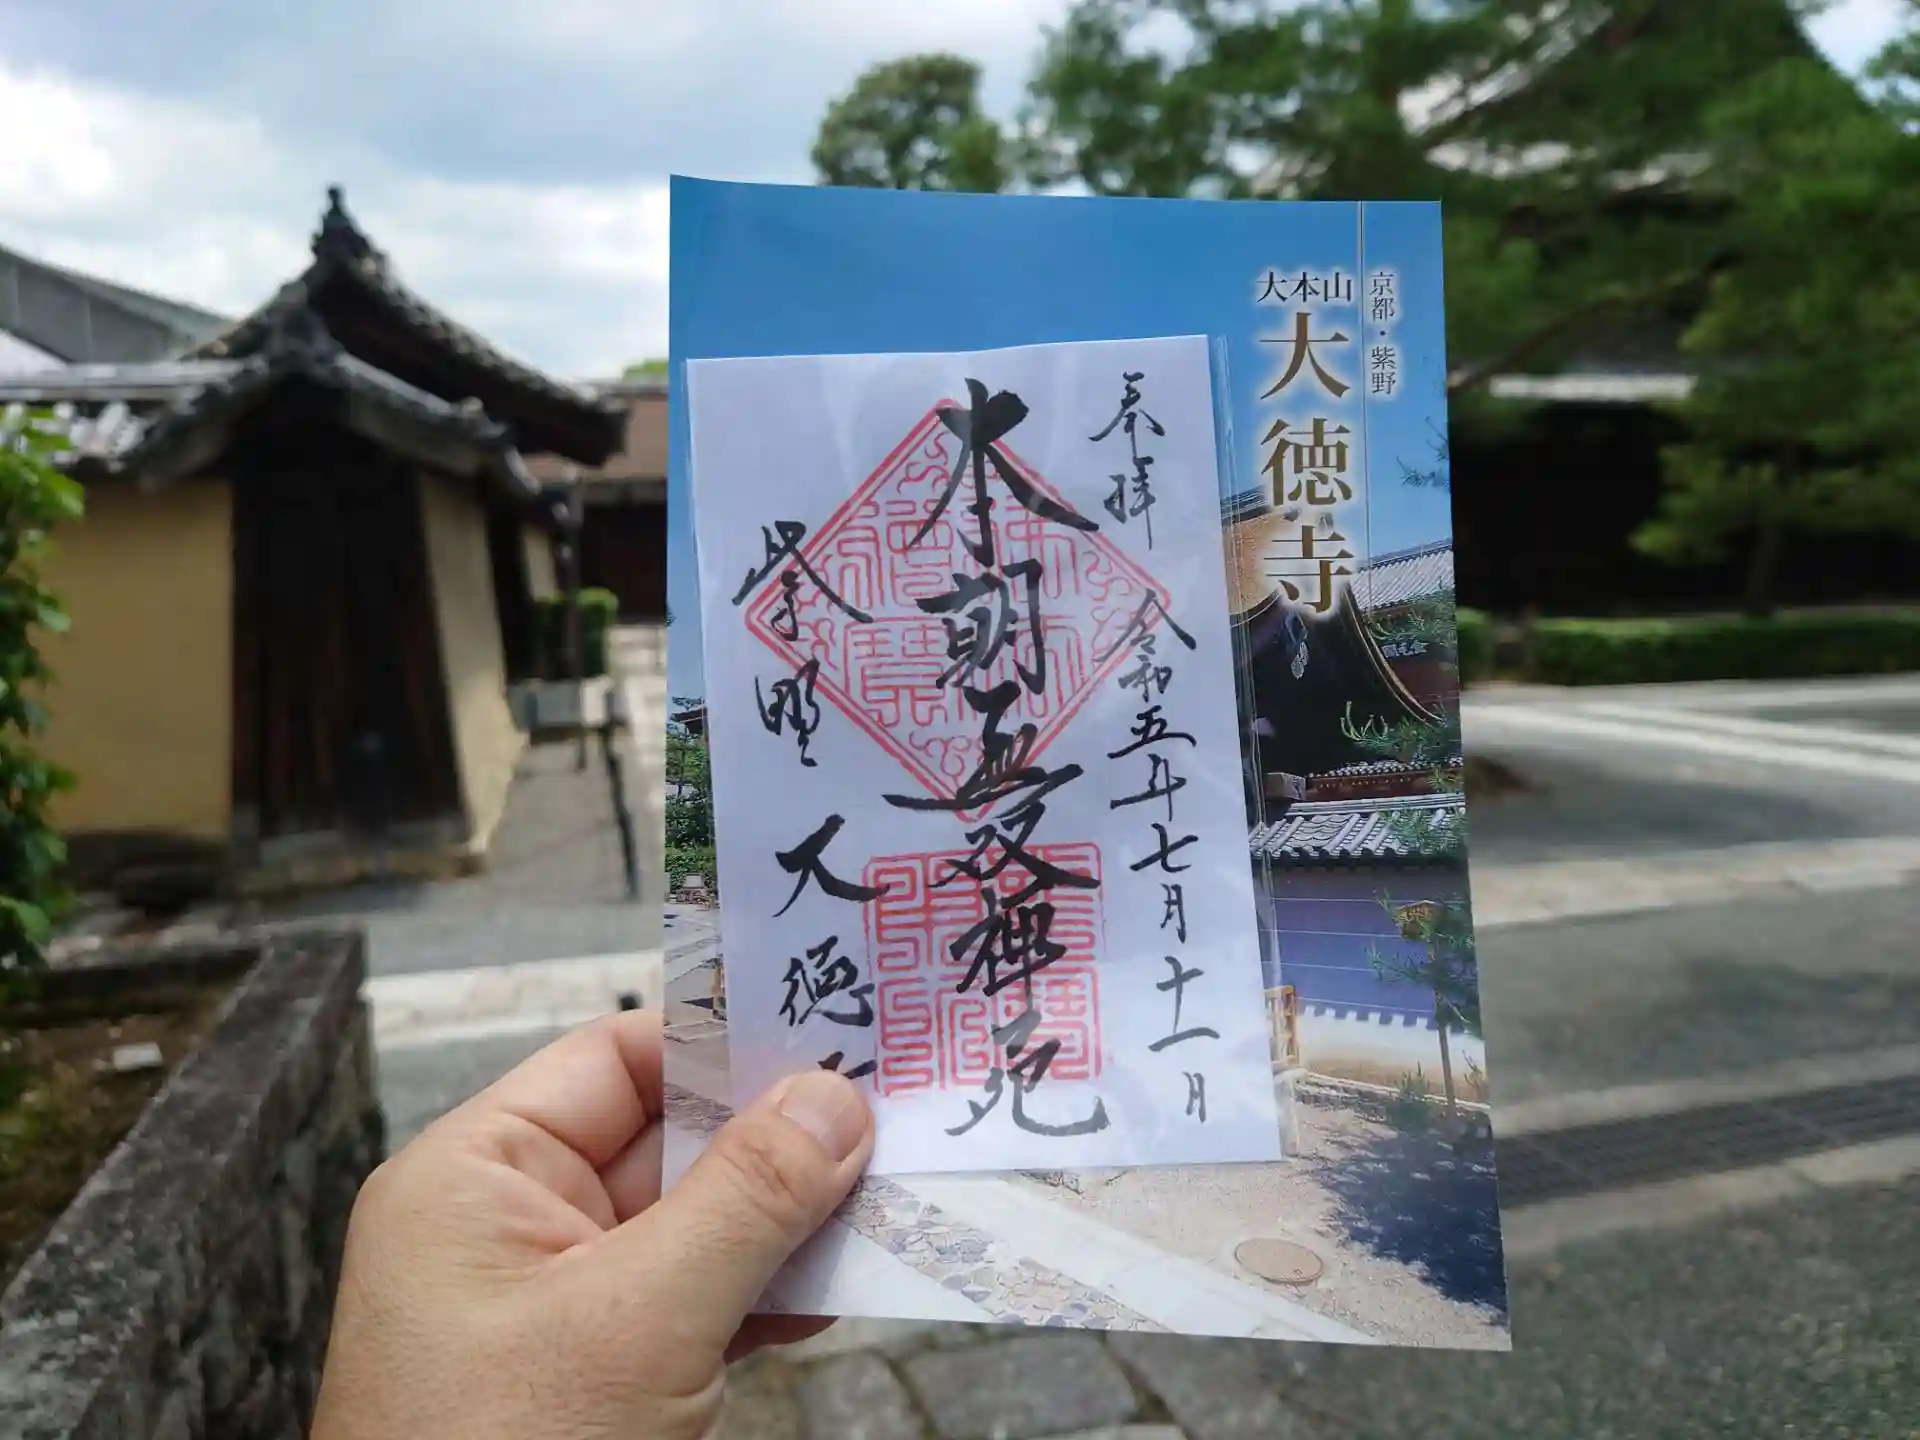 京都・紫野
大本山
大徳寺
奉拝
令和五年七月十一日
本朝無双禅苑
紫野
大徳